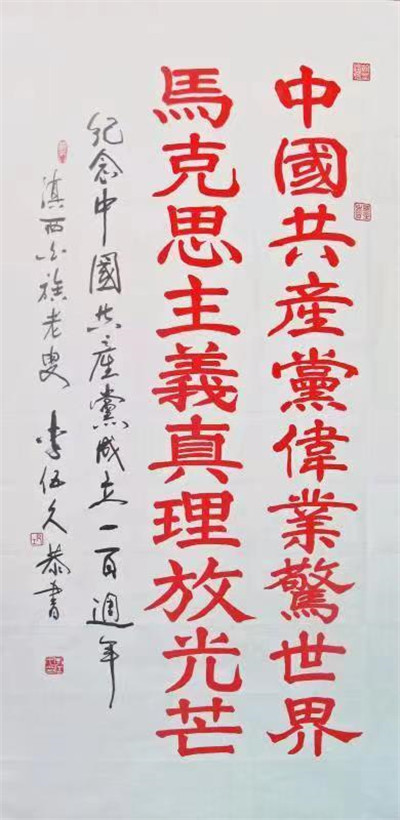 中國共産黨偉業驚世界
馬克思主義真理放光芒
紀念中國共產黨成立一百週年
滇西白族老叟李伍久恭書